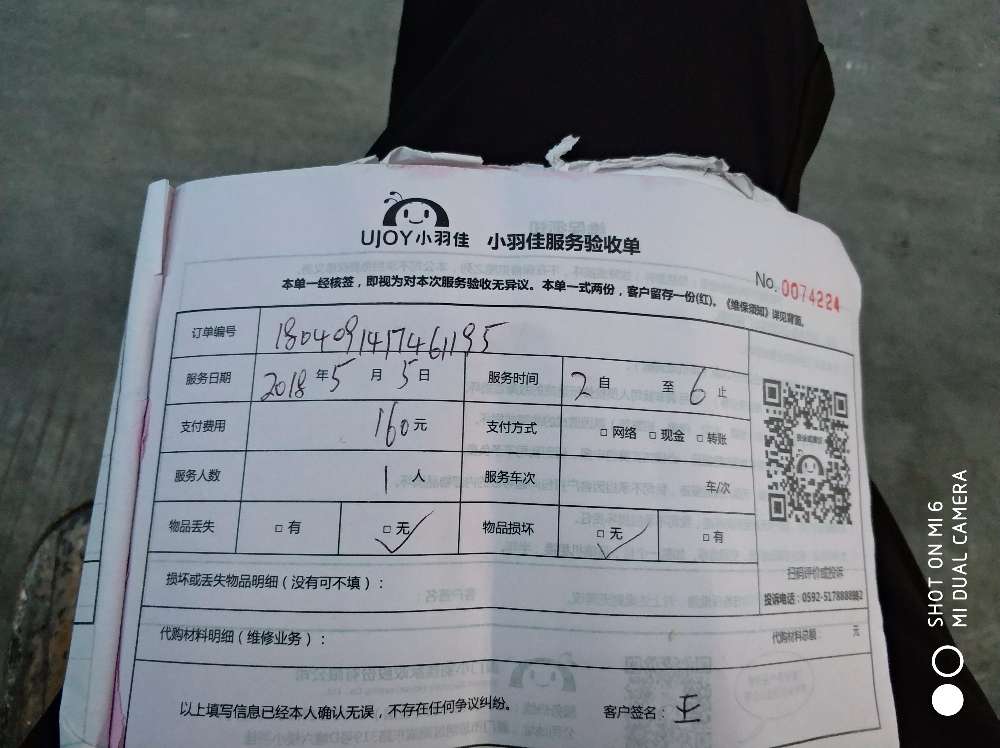 UJOY小羽佳 小羽佳服务验收单
No. 0074224
本单一经核签，即视为对本次服务验收无异议。本单一式两份，客户留存一份(红)。《维保须知》详见背面。
订单编号 1804091417461195
服务日期 2018 年 5 月 5 日 服务时间 2 自 至 6 止
支付费用 160 元 支付方式 □ 网络 □ 现金 □ 转账
服务人数 1 人 服务车次 车/次
物品丢失 □ 有 □ 无 ✓ 物品损坏 □ 无 ✓ □ 有
扫码评价或投诉
损坏或丢失物品明细（没有可不填）：
投诉电话：0592-5178888
代购材料明细（维修业务）：
代购材料总额： 元
以上填写信息已经本人确认无误，不存在任何争议纠纷。 客户签名：王
SHOT ON MI 6
MI DUAL CAMERA